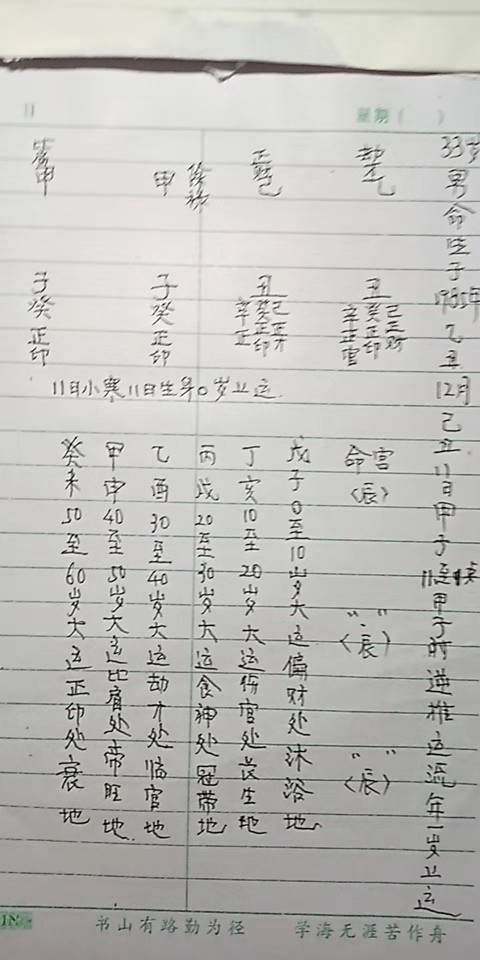 星期( )
33岁男命生于1985年乙丑12月己丑11日甲子11至1点甲子时逆推运流年1岁上运
劫才乙
正财己
日 甲
甲
丑
己正财
癸正印
辛正官
丑
己正才
癸正印
辛正
子
癸
正印
子
癸
正印
11日小寒11日生年0岁上运
命宫
〈辰〉
" "
〈辰〉
" "
〈辰〉
戊子0至10岁大运偏财处沐浴地
丁亥10至20岁大运伤官处长生地
丙戌20至30岁大运食神处冠带地
乙酉30至40岁大运劫才处临官地
甲申40至50岁大运比肩处帝旺地
癸未50至60岁大运正印处衰地
书山有路勤为径 学海无涯苦作舟